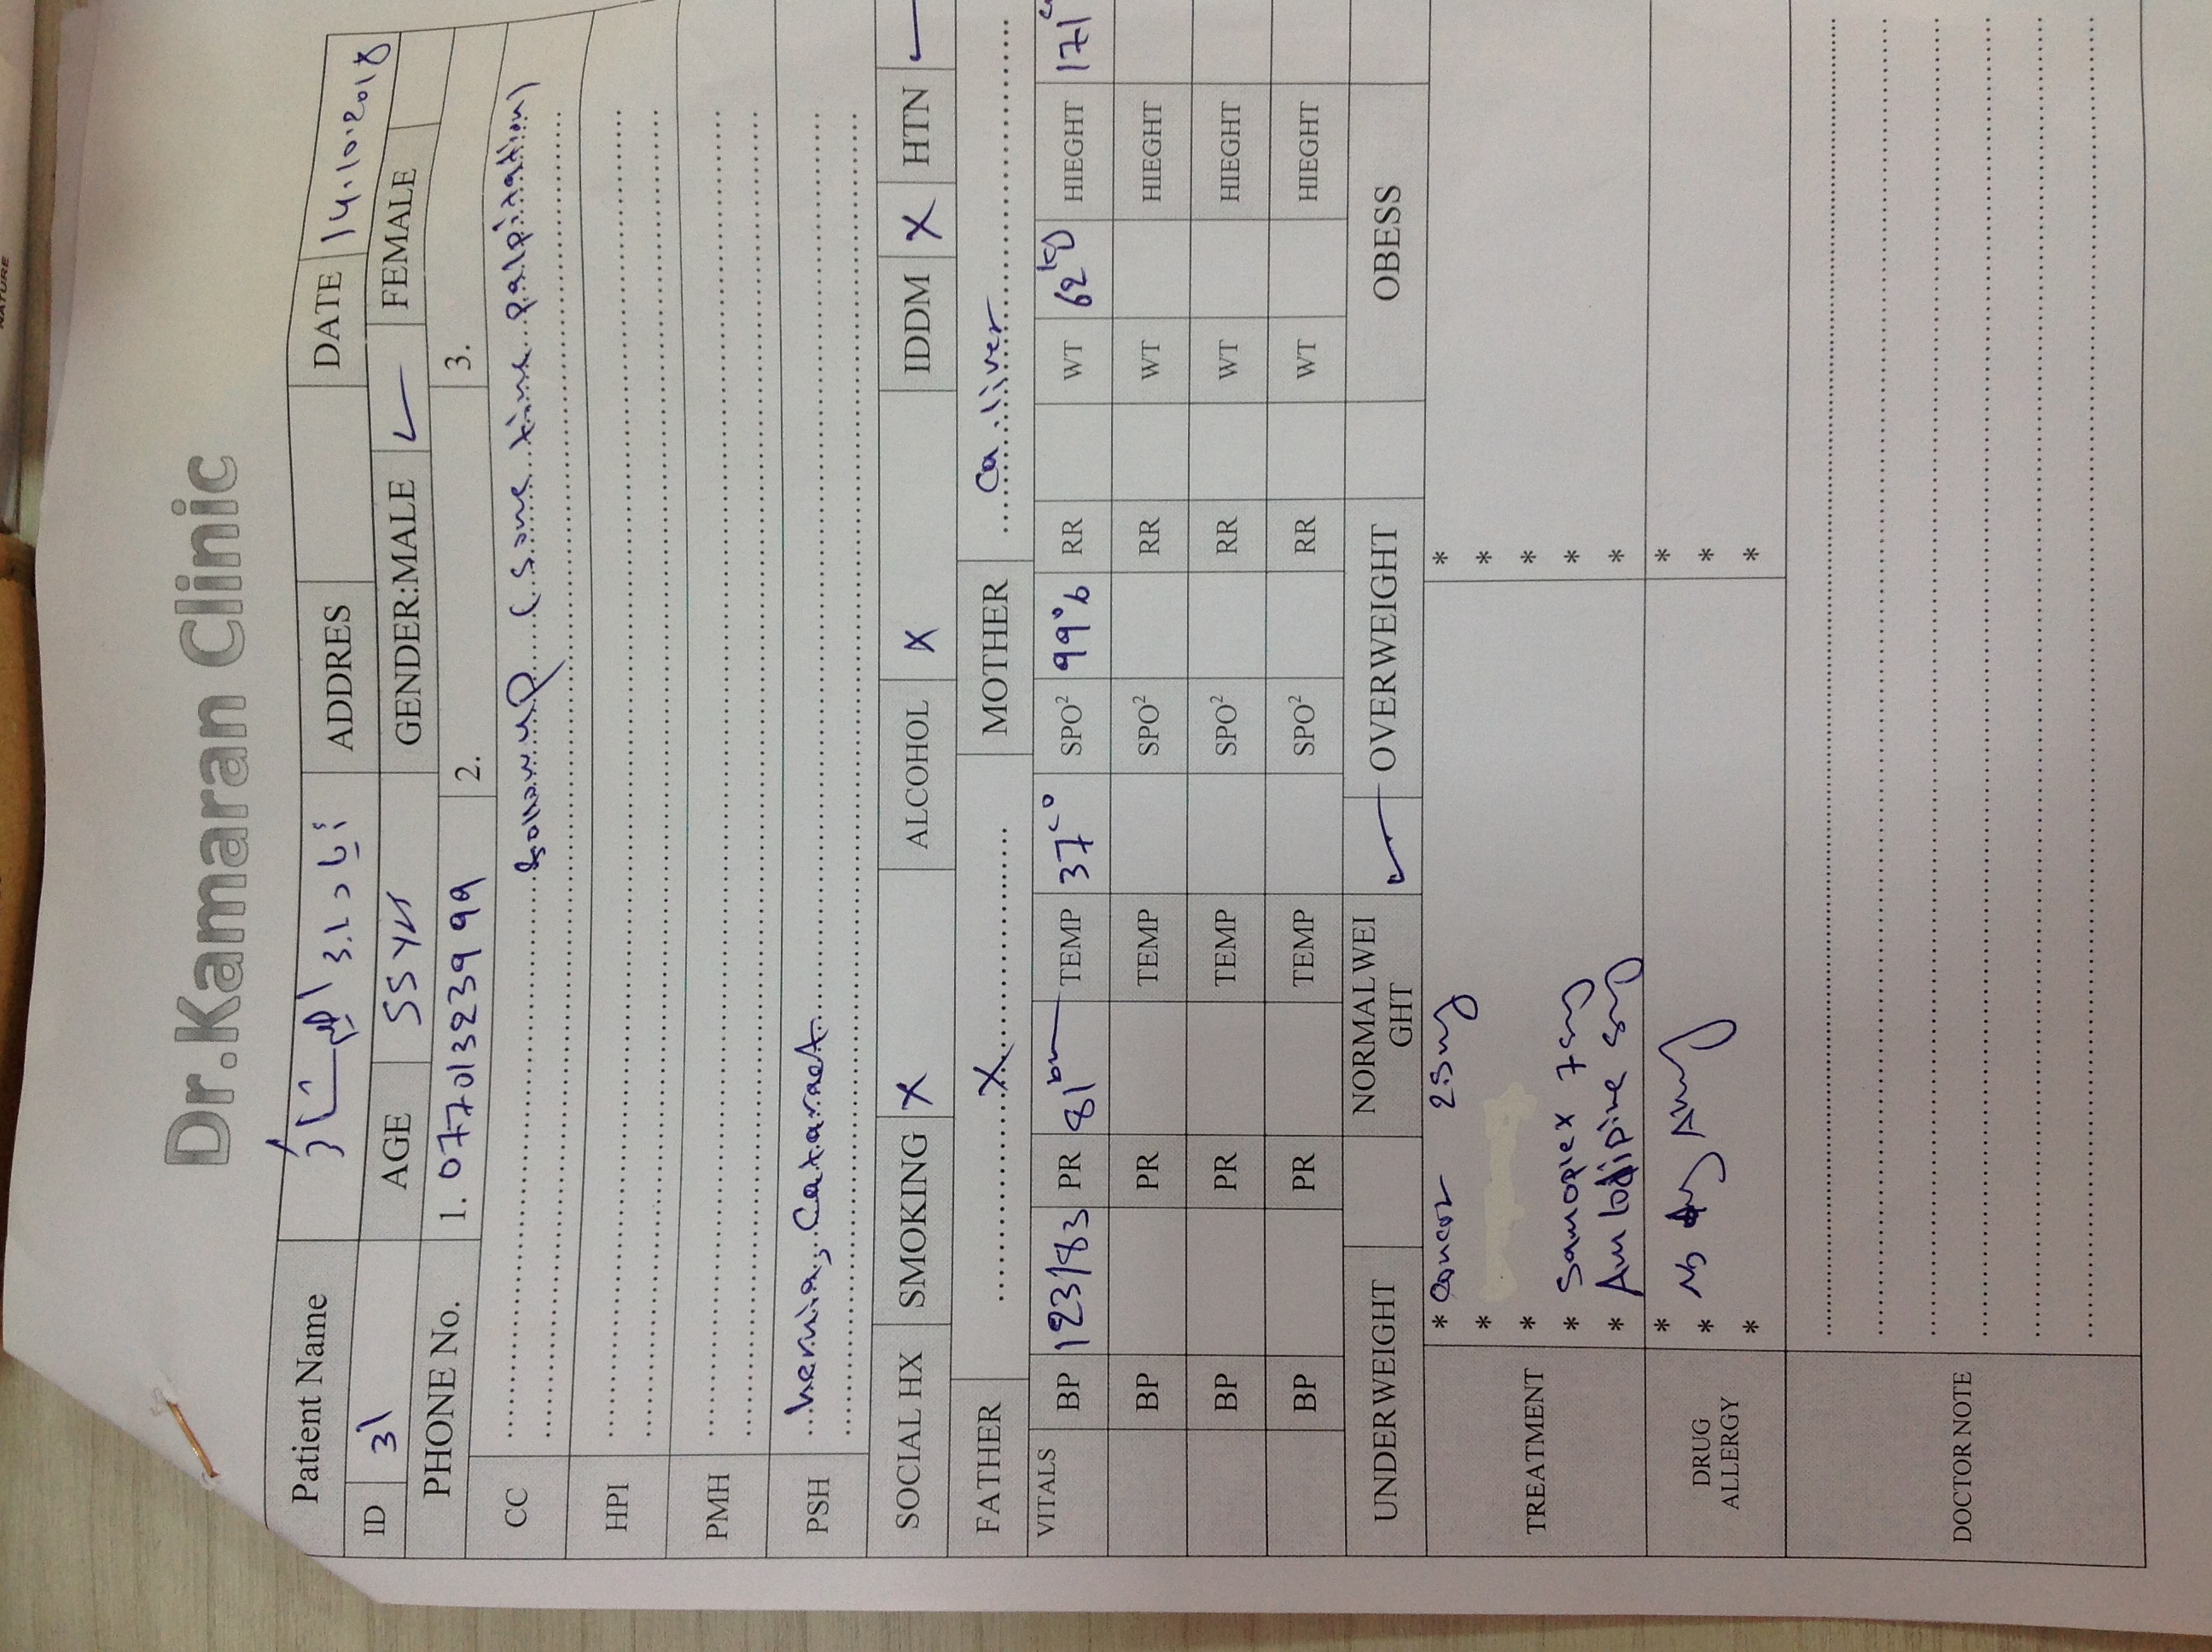 Dr.Kamaran Clinic
Patient Name ADDRES DATE 14.10.2018
ID 31 AGE 55 yr GENDER:MALE ✓ FEMALE
PHONE No. 1. 07701323999 2. 3.
CC followup (some time palpitation)
HPI
PMH
PSH hernia, Cataract
SOCIAL HX SMOKING X ALCOHOL X IDDM X HTN ✓
FATHER X MOTHER Ca liver
VITALS BP 123/83 PR 81 TEMP 37 c° SPO² 99% RR WT 62 kg HIEGHT 171
BP PR TEMP SPO² RR WT HIEGHT
BP PR TEMP SPO² RR WT HIEGHT
BP PR TEMP SPO² RR WT HIEGHT
UNDERWEIGHT NORMALWEI GHT ✓ OVERWEIGHT OBESS
TREATMENT
* Concor *
* *
* *
* *
* Amlodipine *
DRUG ALLERGY
* *
* No *
* *
DOCTOR NOTE
NATURE